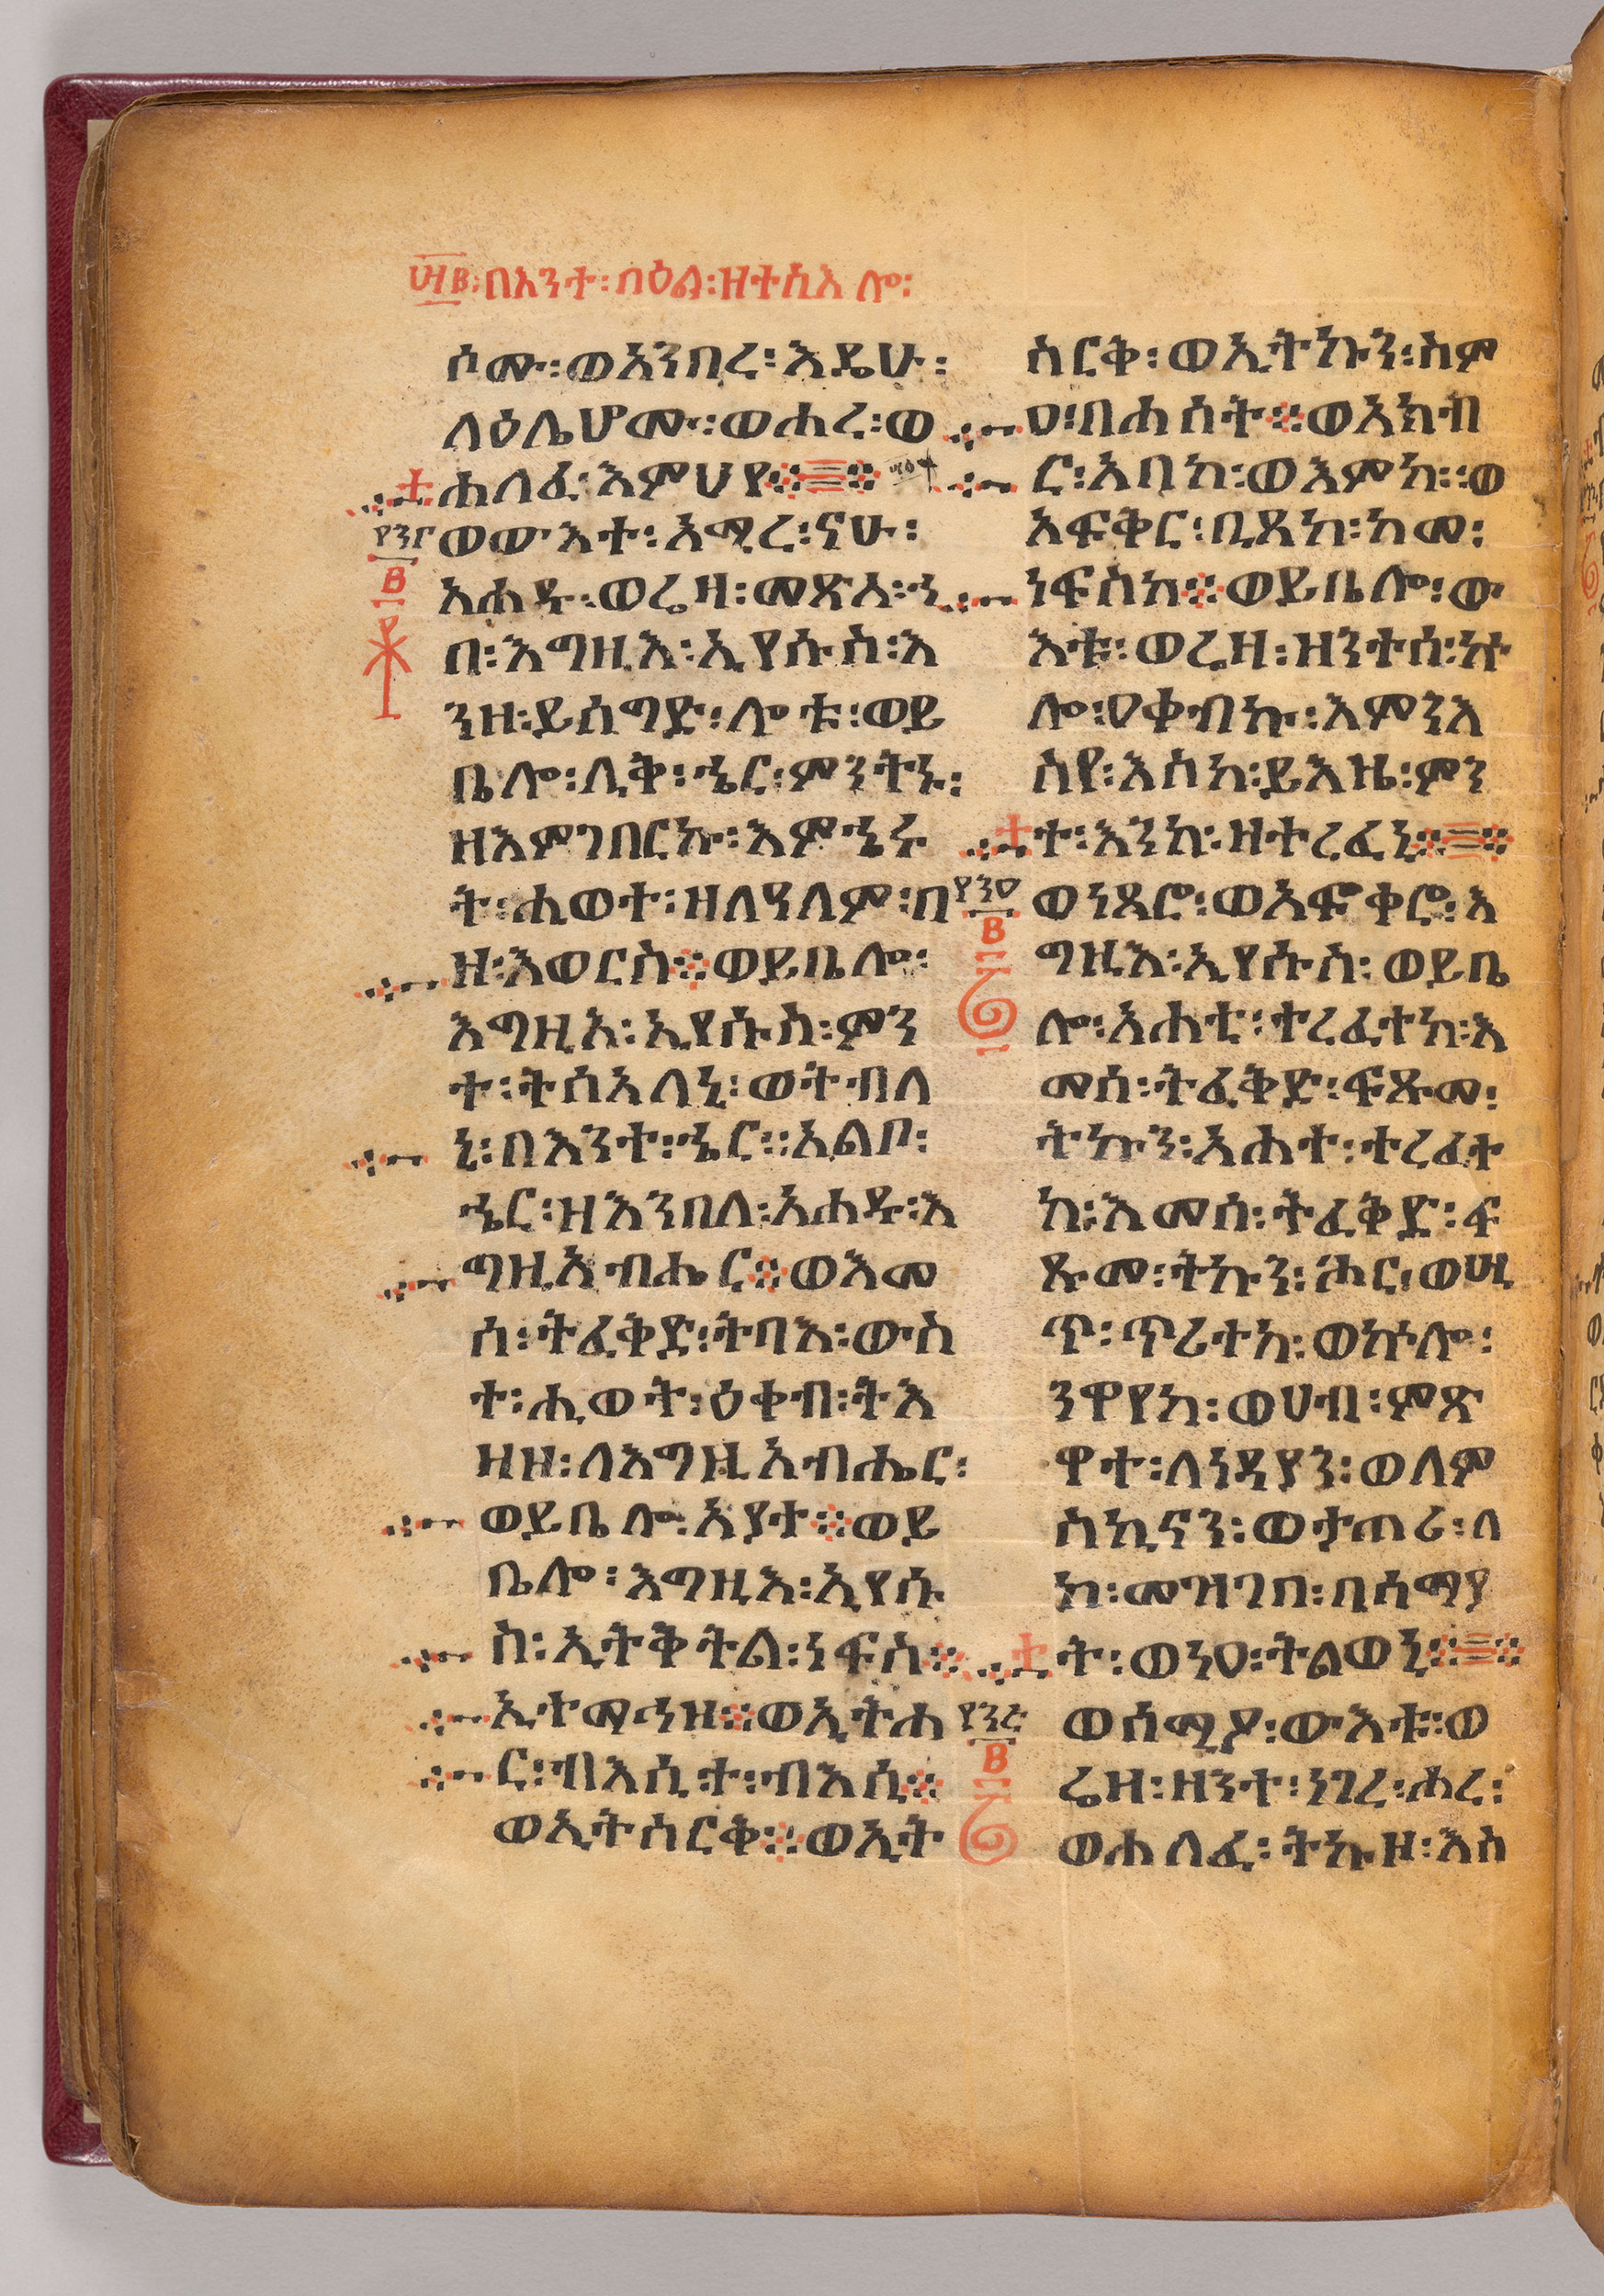 በእንተ፡ብዕል፡ዘተስእሎ፡
ሶሙ፡ወአንበረ፡እዴሁ፡
ላዕሌሆሙ፡ወሐረ፡ወ
ሐለፈ፡እምህየ፨
ወውእተ፡አሚረ፡ናሁ፡
አሐዱ፡ወሬዛ፡መጽአ፡ኀ
በ፡እግዚእ፡ኢየሱስ፡እ
ንዘ፡ይሰግድ፡ሎቱ፡ወይ
ቤሎ፡ሊቅ፡ኄር፡ምንትኑ፡
ዘእምገበርኩ፡እምኄሩ
ት፡ሒወተ፡ዘለዓለም፡በ
ዘ፡እወርስ፨ወይቤሎ፡
እግዚእ፡ኢየሱስ፡ምን
ተ፡ትሰአለኒ፡ወትብለ
ኒ፡በእንተ፡ኄር፡፡አልቦ፡
ኄር፡ዘእንበለ፡አሐዱ፡እ
ግዚአብሔር፨ወእመ
ሰ፡ትፈቅድ፡ትባእ፡ውስ
ተ፡ሒወት፡ዕቀብ፡ትእ
ዛዘ፡ለእግዚአብሔር፡
ወይቤሎ፡አያተ፨ወይ
ቤሎ፡እግዚእ፡ኢየሱ
ስ፡ኢትቅትል፡ነፍስ፨
ኢተማኅዝ፨ወኢትሐ
ር፡ብእሲተ፡ብእሲ፨
ወኢትሰርቅ፨ወኢት
ስርቅ፡ወኢትኩን፡ስም
ዐ፡በሐሰት፨ወአክብ
ር፡አባከ፡ወእምከ፡፡ወ
አፍቅር፡ቢጸከ፡ከመ፡
ነፍስከ፨ወይቤሎ፡ው
እቱ፡ወሬዛ፡ዘንተሰ፡ኵ
ሎ፡ዐቀብኩ፡እምንእ
ስየ፡እስከ፡ይእዜ፡ምን
ተ፡እንከ፡ዘተረፈኒ፨
ወነጸሮ፡ወአፍቀሮ፡እ
ግዚእ፡ኢየሱስ፡ወይቤ
ሎ፡አሐቲ፡ተረፈተከ፡እ
መሰ፡ትፈቅድ፡ፍጹመ፡
ትኩን፡አሐተ፡ተረፈት
ከ፡እመሰ፡ትፈቅድ፡ፍ
ጹመ፡ትኩን፡ሑር፡ወሢ
ጥ፡ጥሪተከ፡ወኵሎ፡
ንዋየከ፡ወሀብ፡ምጽ
ዋተ፡ለነዳያን፡ወለም
ስኪናን፡ወታጠሪ፡ለ
ከ፡መዝገበ፡በሰማያ
ት፡ወነዐ፡ትልወኒ፨
ወሰሚዖ፡ውእቱ፡ወ
ሬዛ፡ዘንተ፡ነገረ፡ሖረ፡
ወሐለፈ፡ትኩዘ፡እስ